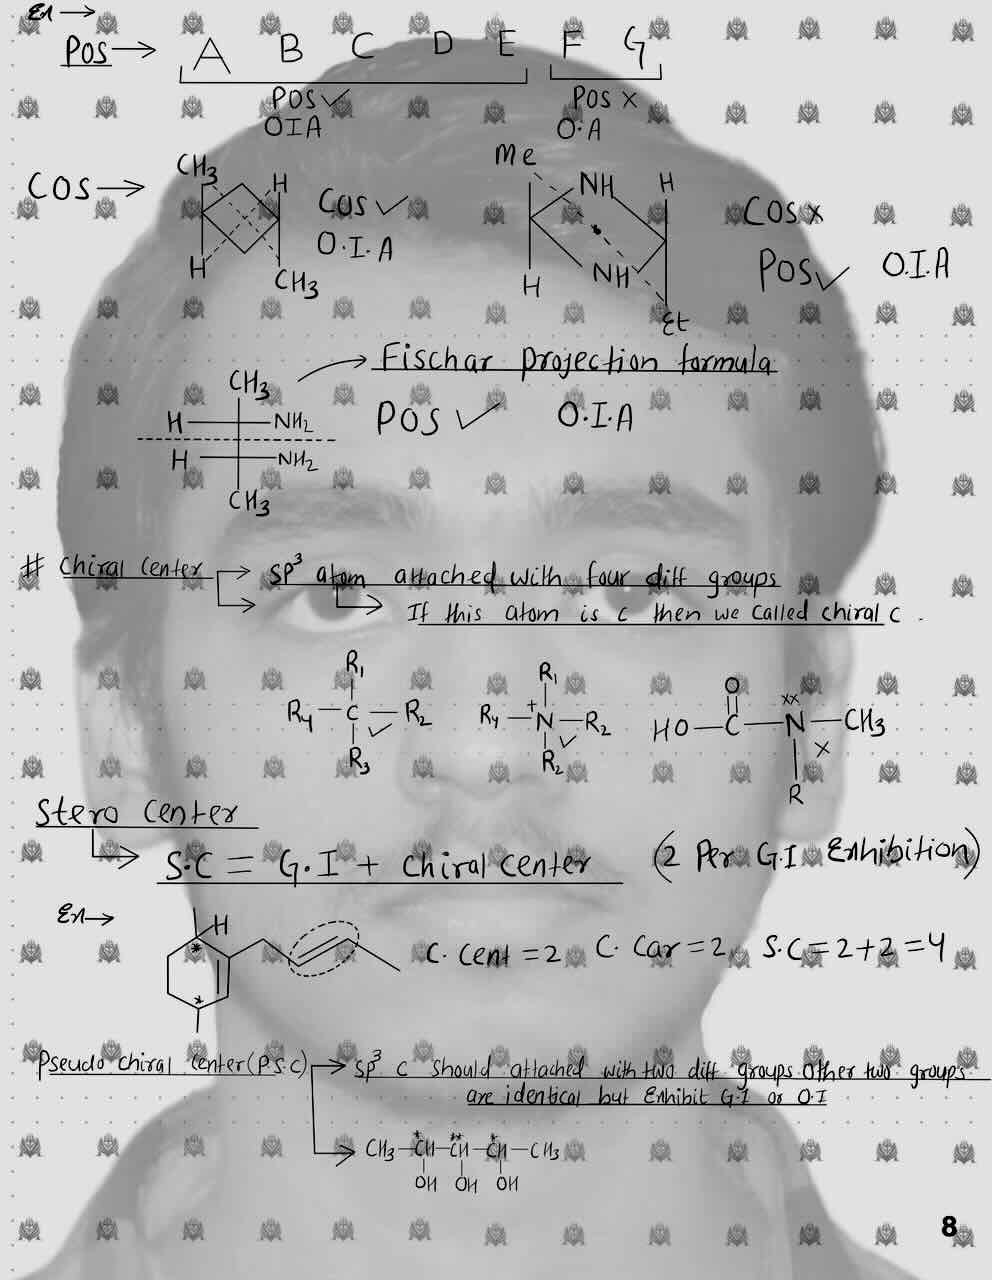 Ex →
POS → A B C D E F G
POS ✓ POS ×
OIA O.A
COS → CH3 H COS ✓ O.I.A
H CH3
Me NH H COS ×
H NH Et POS ✓ O.I.A
Fischar projection formula
CH3
H NH2 POS ✓ O.I.A
H NH2
CH3
# Chiral Center → SP3 atom attached with four diff groups
→ If this atom is c then we called chiral c .
R1 R1 O xx
R4 — C — R2 ✓ R4 — +N — R2 ✓ HO — C — N — CH3 ×
R3 R2 R
Stero Center
→ S.C = G.I + chiral center (2 Per G.I Exhibition)
Ex →
H * * C. Cent = 2 C. Car = 2 S.C = 2 + 2 = 4
Pseudo chiral center (P.S.C) → SP3 c should attached with two diff groups other two groups
are identical but Exhibit G.I or O.I
→ CH3 — *CH — **CH — *CH — CH3
OH OH OH
8